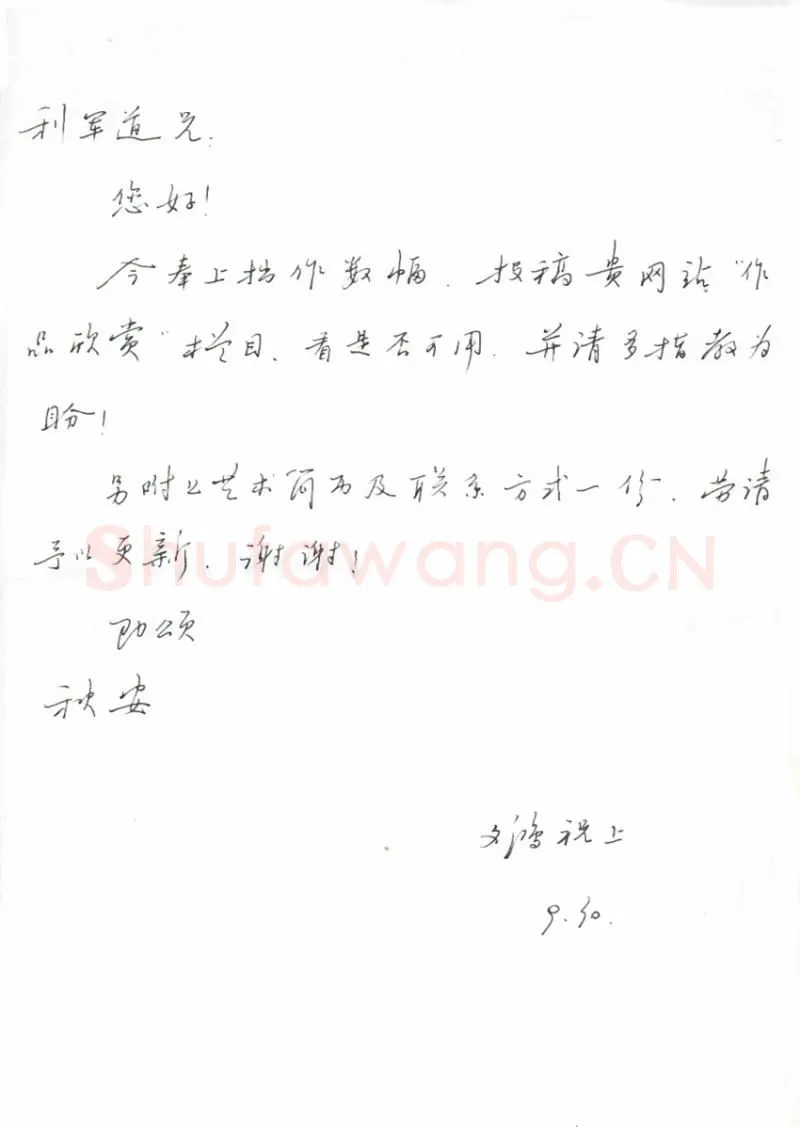 利军道兄:
您好!
今奉上拙作数幅、投稿贵网站“作
品欣赏”栏目、看是否可用、并请多指教为
盼!
另附上艺术简历及联系方式一份、劳请
予以更新、谢谢!
即颂
秋安
文鸿祝上
9.30.
Shufawang.CN